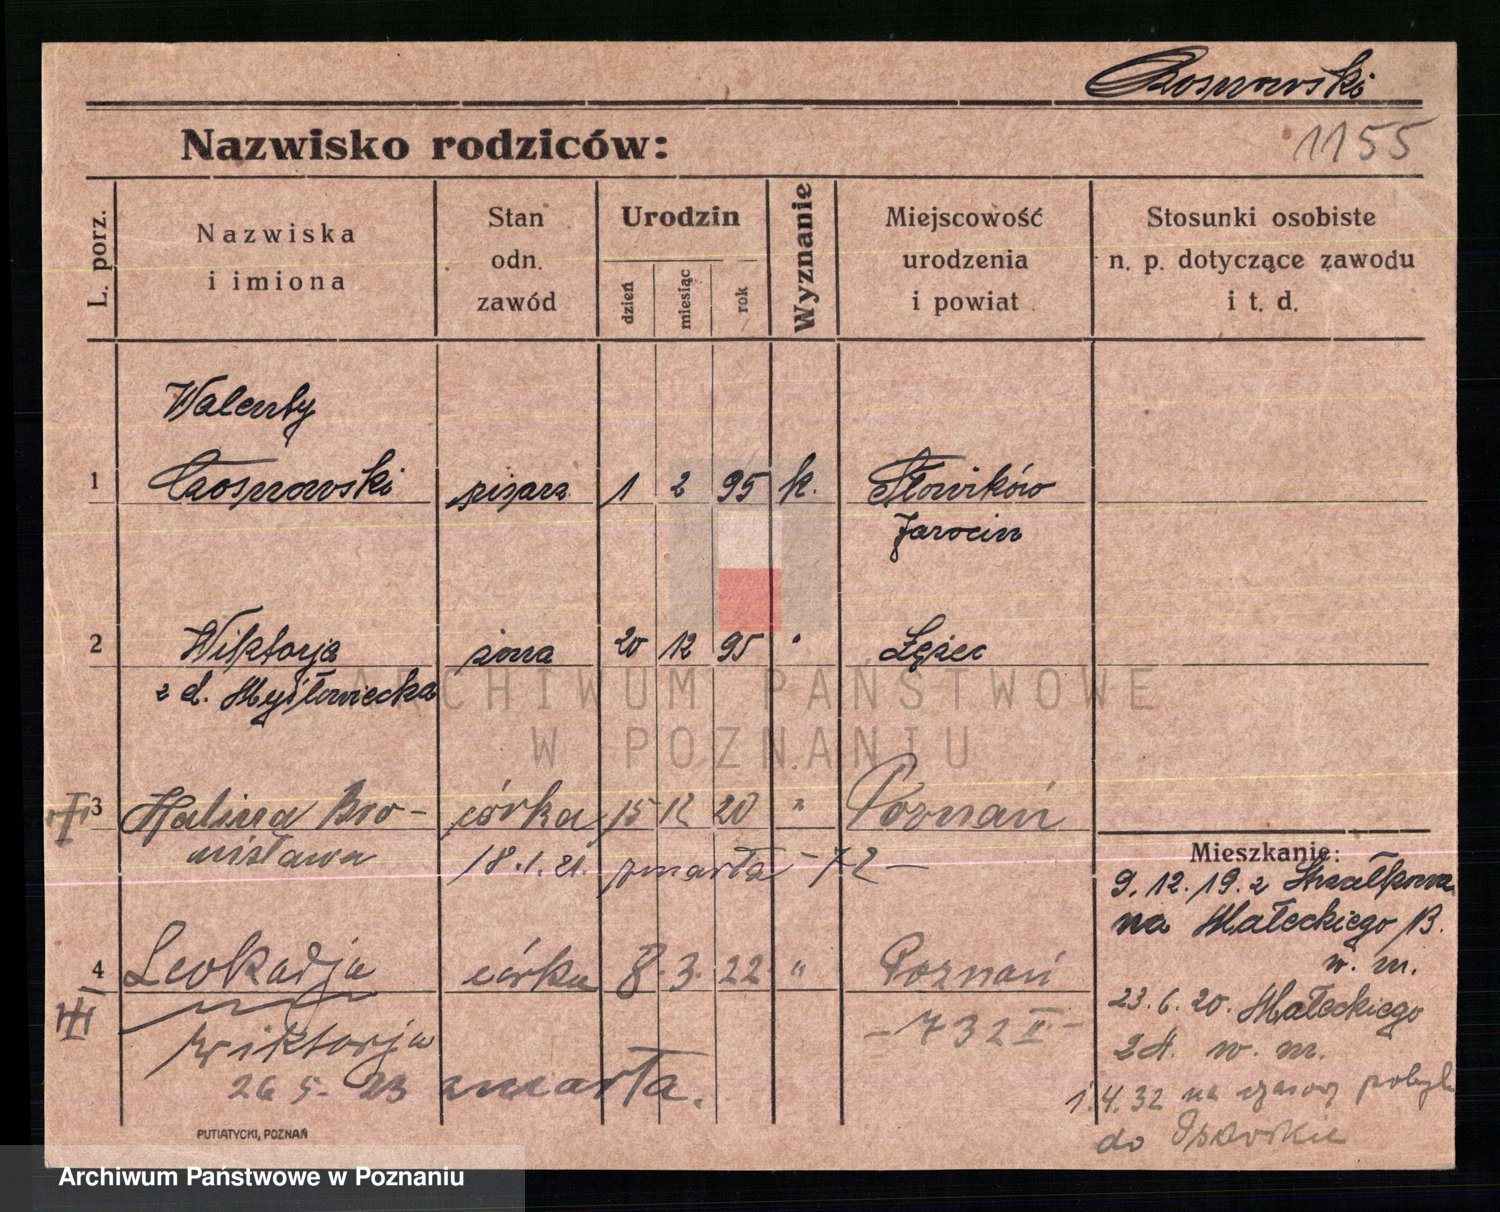 Czosnowski
Nazwisko rodziców:
1155
L. porz.
Nazwiska
i imiona
Stan
odn.
zawód
Urodzin
dzień
miesiąc
rok
Wyznanie
Miejscowość
urodzenia
i powiat
Stosunki osobiste
n. p. dotyczące zawodu
i t. d.
Walenty
1 Czosnowski pisarz 1 2 95 k. Słowików
Jarocin
2 Wiktorja żona 20 12 95 " Łężec
z d. Mysłowiecka
3 Halina Bro- córka 15 12 20 " Poznań
nisława 18.1.21. zmarła -72-
Mieszkanie:
9.12.19. z Strzałkowa
na Małeckiego B.
w. m.
4 Leokadja córka 8. 3. 22 " Poznań
Wiktorja -732 II-
23.6.20. Małeckiego
24. w. m.
26 5. 23 zmarła.
1.4.32 na czasowy pobyt
do
PUTIATYCKI, POZNAŃ
ARCHIWUM PAŃSTWOWE
W POZNANIU
Archiwum Państwowe w Poznaniu